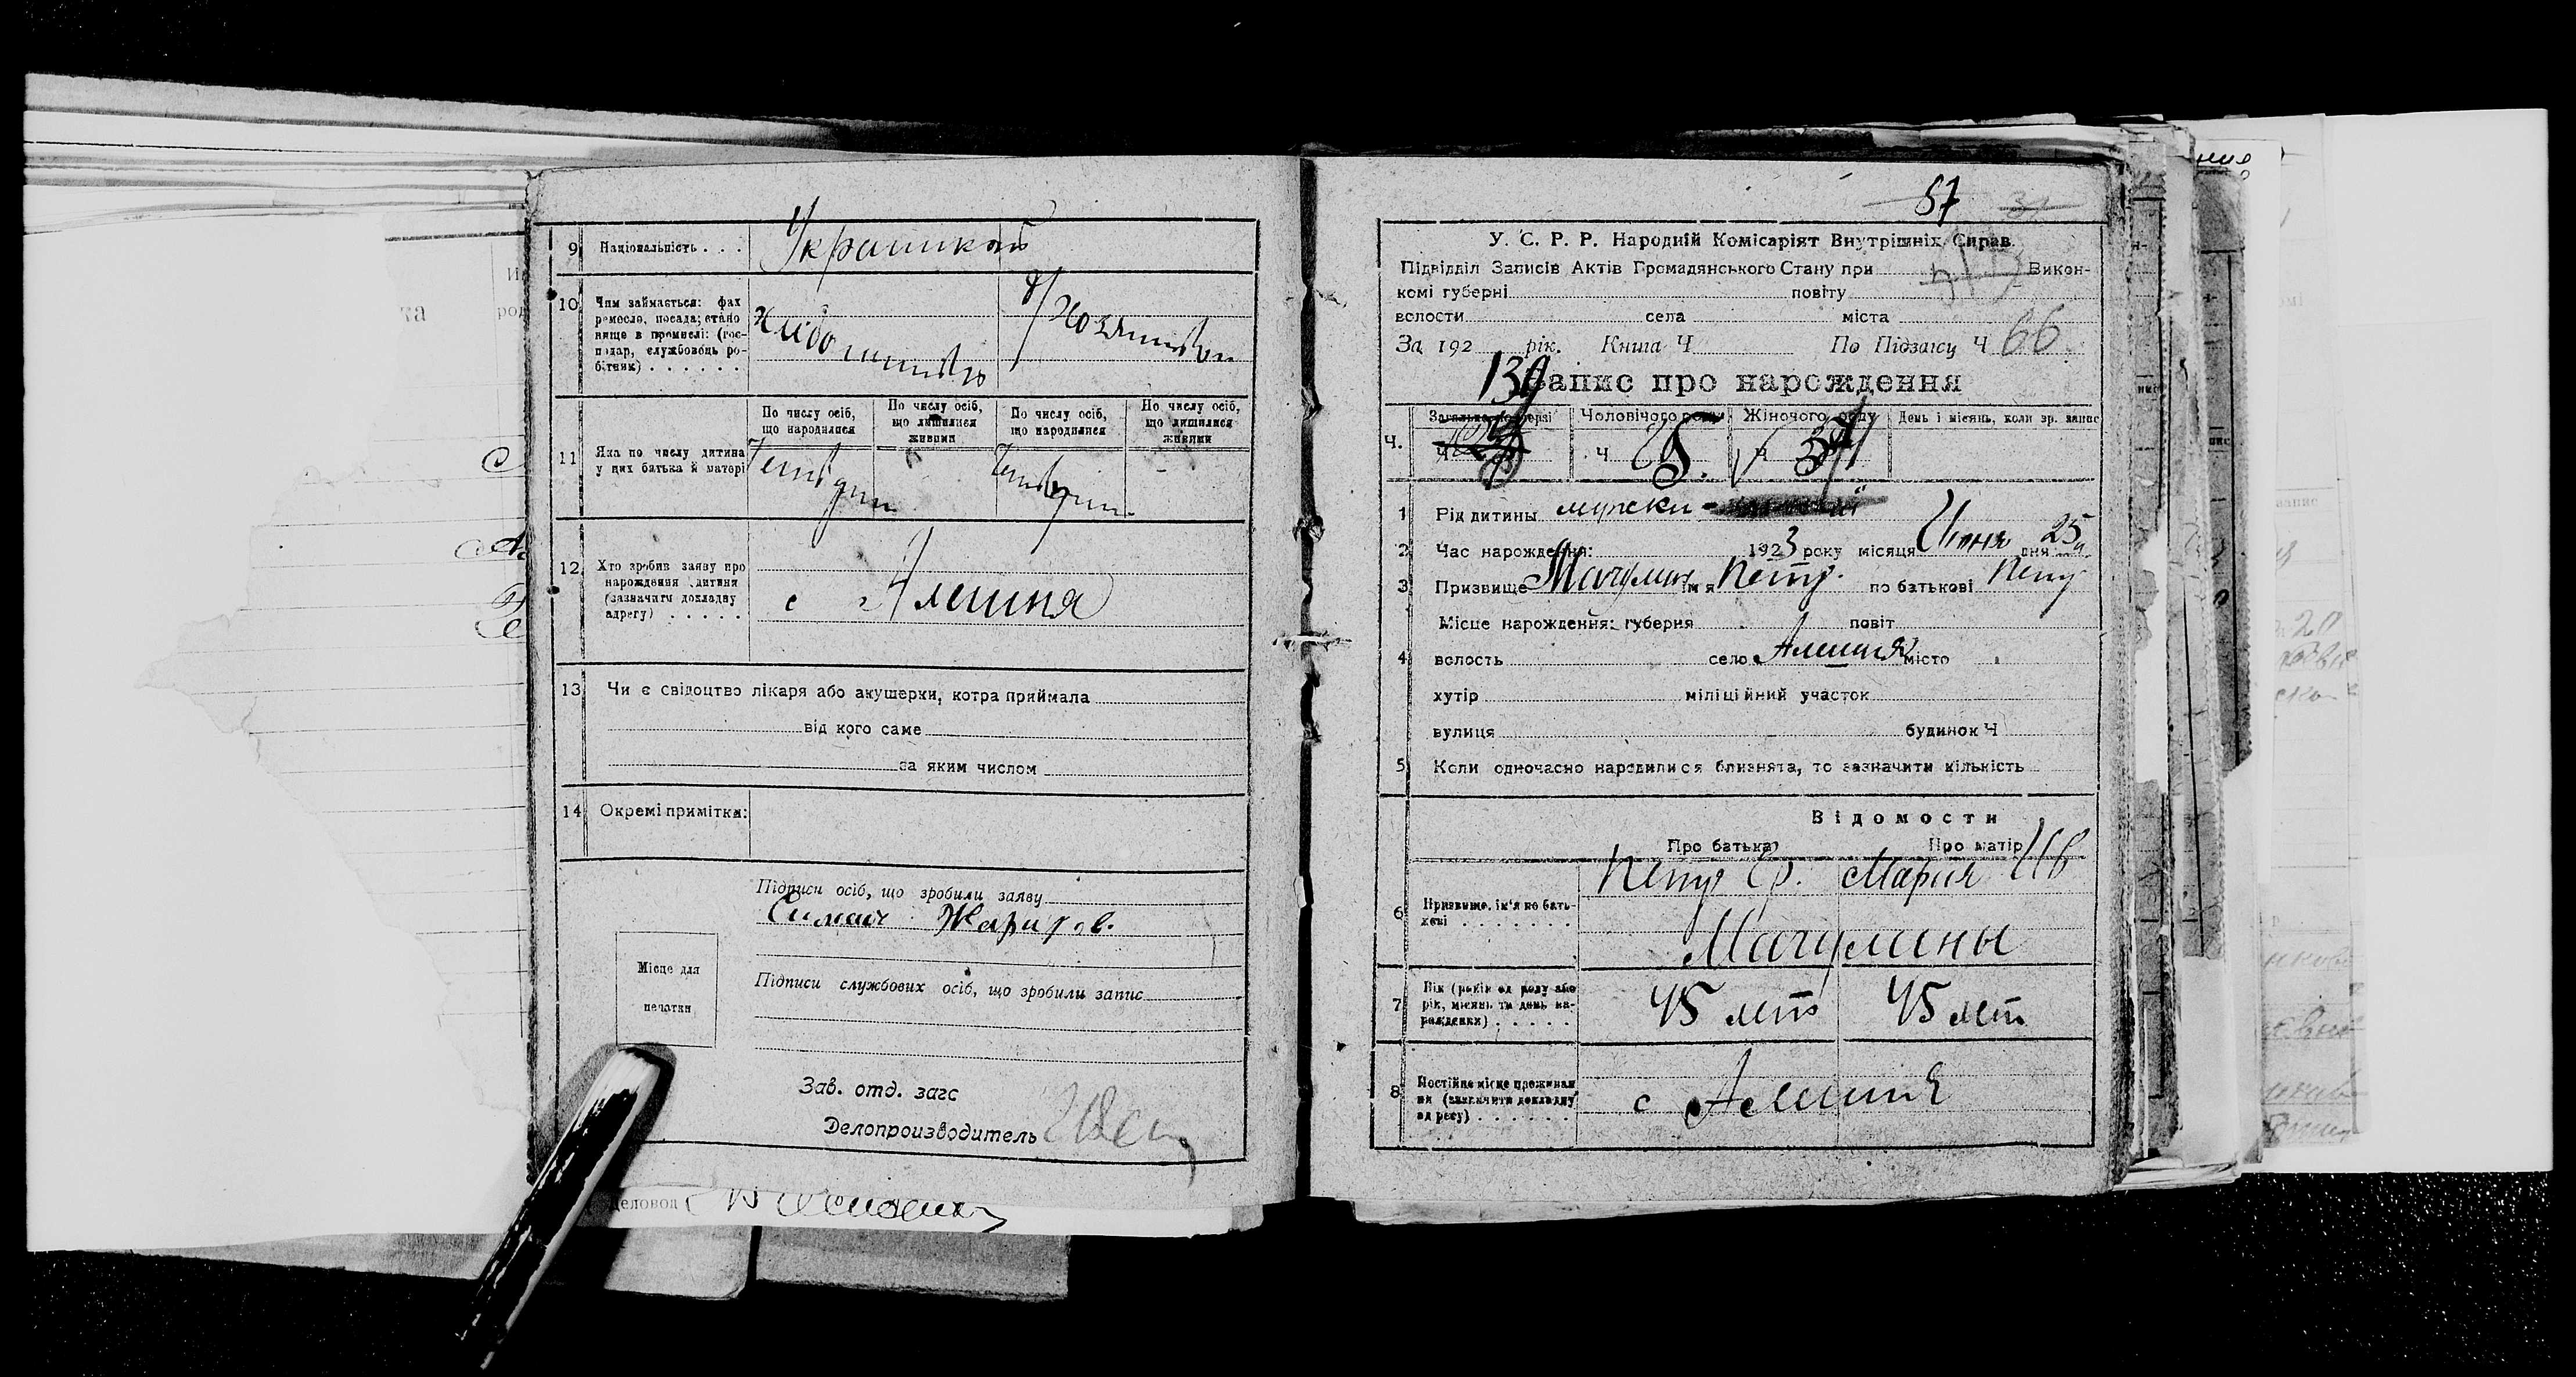 9 Національність . . . Украинск
10 Чим займається: фах
ремесло, посада; стано
вище в промислі: (гос-
подар, службовець ро-
бітник) . . . . . .
11 Яка по числу дитина
у цих батька й матері
По числу осіб,
що народилися
По числу осіб,
що лишилися
живими
По числу осіб,
що народилися
По числу осіб,
що лишилися
живими
12 Хто зробив заяву про
нарождення дитини
(зазначити докладну
адресу) . . . . .
с Алешня
13 Чи є свідоцтво лікаря або акушерки, котра приймала
від кого саме
за яким числом
14 Окремі примітки:
Підписи осіб, що зробили заяву
Симан
Місце для
печатки
Підписи службових осіб, що зробили запис
Зав. отд. загс
Делопроизводитель
Деловод
87
У. С. Р. Р. Народній Комісаріят Внутрішніх Справ.
Підвідділ Записів Актів Громадянського Стану при Викон-
комі губерні повіту
волости села міста
За 192 рік. Книга Ч По Підзагсу Ч 66
139
Запис про нарождення
Загально по версі Чоловічого роду Жіночого роду День і місянь, коли зр. запис
Ч. Ч Ч Ч
1 Рід дитины мужски
2 Час нарождення: 1923 року місяця Июня дня 25
3 Призвище Мачулин імя Петр. по батькові Петр
Місце нарождення: губерня повіт
4 волость село Алешня місто
хутір міліційний участок
вулиця будинок Ч
5 Коли одночасно народилися близнята, то зазначити кількість
Відомости
Про батька Про матір
6 Призвище, ім'я по бать-
кові . . . . . . .
Петр Ер. Мария Ив
Мачулины
7 Вік (років од роду або
рік, місянь та день на-
рождення) . . . . .
45 лет 45 лет
8 Постійне місце проживан
ня (зазначити докладну
адресу) . . . . . .
с Алешня